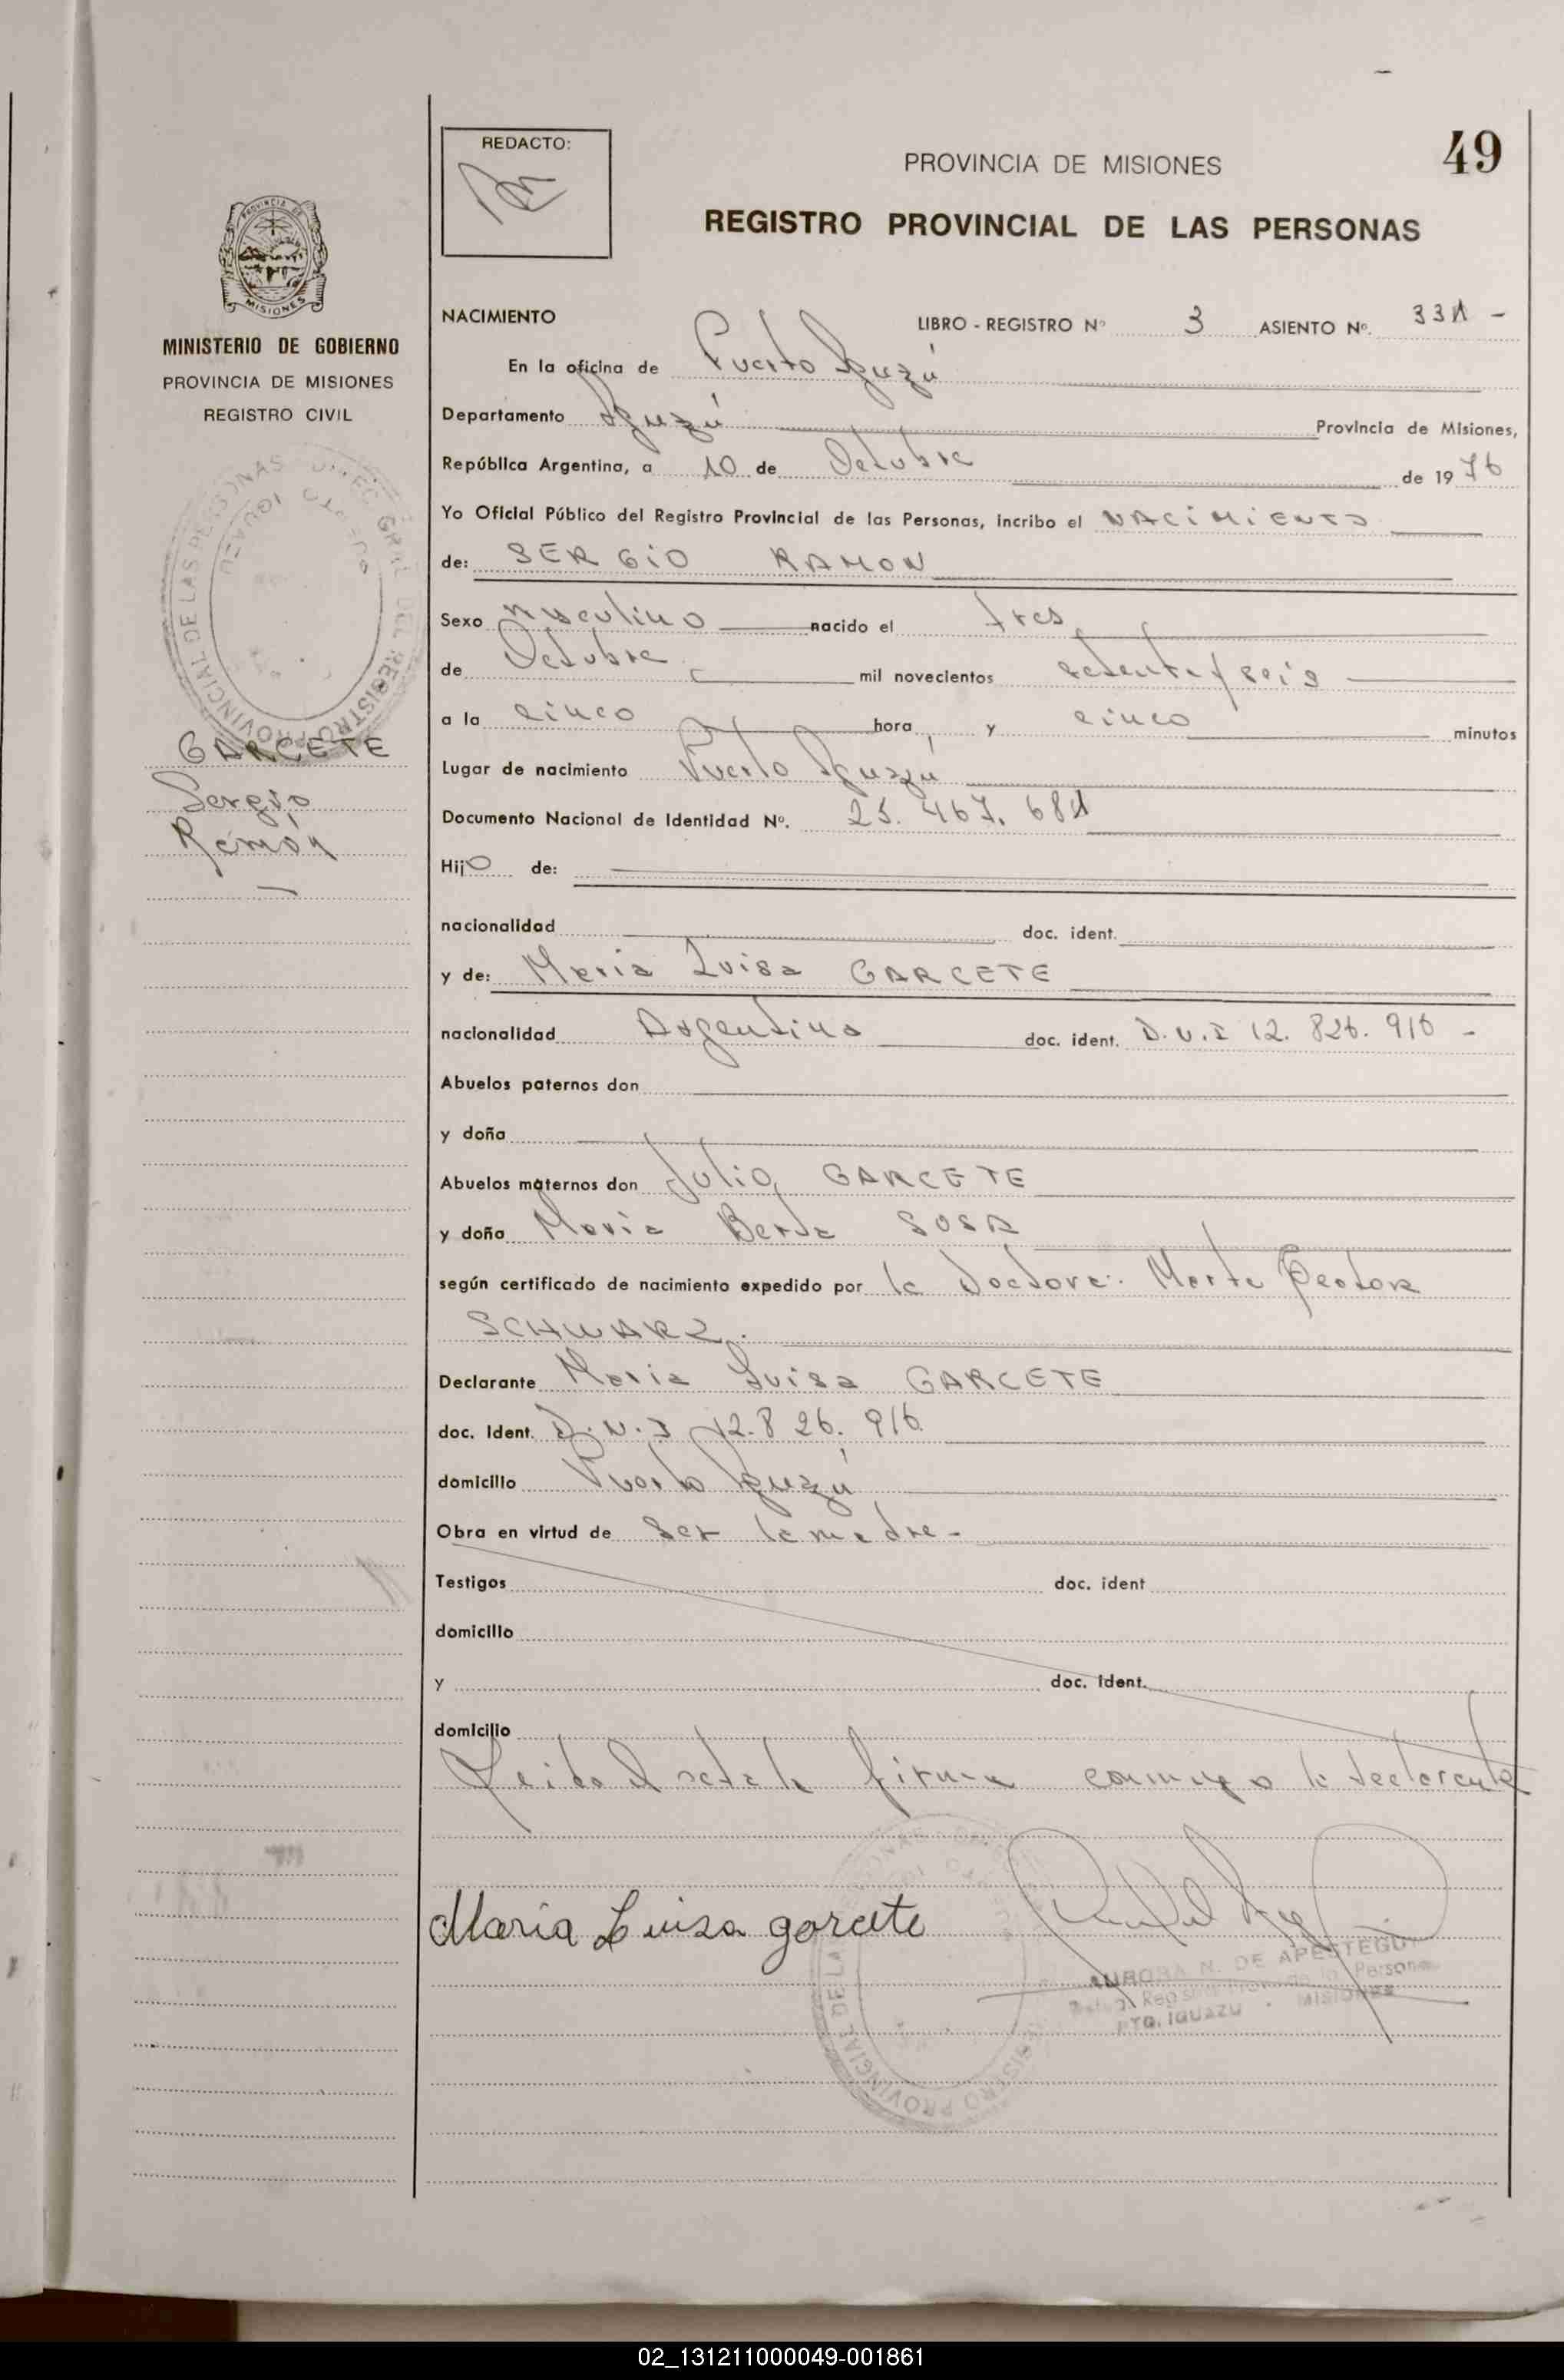 49
REDACTO:
PROVINCIA DE MISIONES
REGISTRO PROVINCIAL DE LAS PERSONAS
PROVINCIA DE
MISIONES
MINISTERIO DE GOBIERNO
PROVINCIA DE MISIONES
REGISTRO CIVIL
GARCETE
Sergio
Ramón
NACIMIENTO LIBRO - REGISTRO Nº 3 ASIENTO Nº. 331 -
En la oficina de Puerto Iguazú
Departamento Iguazú Provincia de Misiones,
República Argentina, a 10 de Octubre de 1976
Yo Oficial Público del Registro Provincial de las Personas, incribo el NACIMIENTO
de: SERGIO RAMON
Sexo masculino nacido el tres
de Octubre mil novecientos setenta y seis
a la cinco hora y cinco minutos
Lugar de nacimiento Puerto Iguazú
Documento Nacional de Identidad Nº. 25.467.681
Hijo de:
nacionalidad doc. ident.
y de: Maria Luisa GARCETE
nacionalidad Argentina doc. ident. D.N.I 12.826.916 -
Abuelos paternos don
y doña
Abuelos maternos don Julio GARCETE
y doña Maria Berta SOSA
según certificado de nacimiento expedido por la Doctora: Marta
SCHWARZ.
Declarante Maria Luisa GARCETE
doc. Ident. D.N.I 12.826.916
domicilio Puerto Iguazú
Obra en virtud de ser la madre -
Testigos doc. ident
domicilio
y doc. Ident.
domicilio
Leida el acta la firma conmigo la declarante
Maria Luisa garcete
AURORA N. DE APESTEGUI
PTO. IGUAZU - MISIONES
02_131211000049-001861